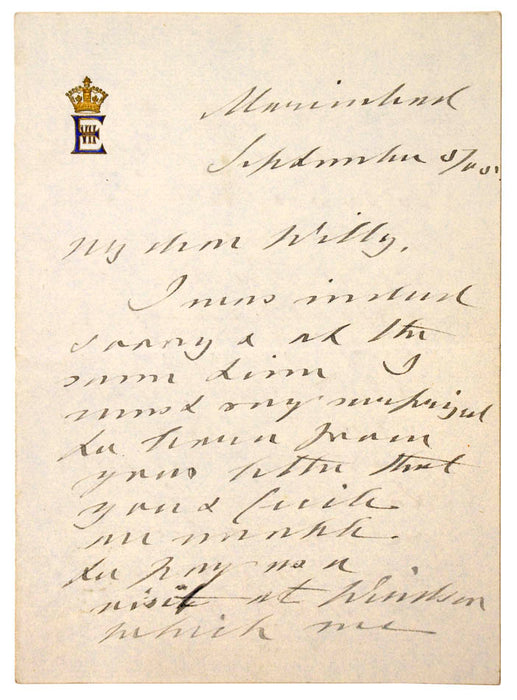 E VII
Marienbad
September 5/05.
My dear Willy,
I was indeed
sorry & at the
same time I
must say surprised
to hear from
your letter that
you & Cecile
are unable
to pay us a
visit at Windsor
which we